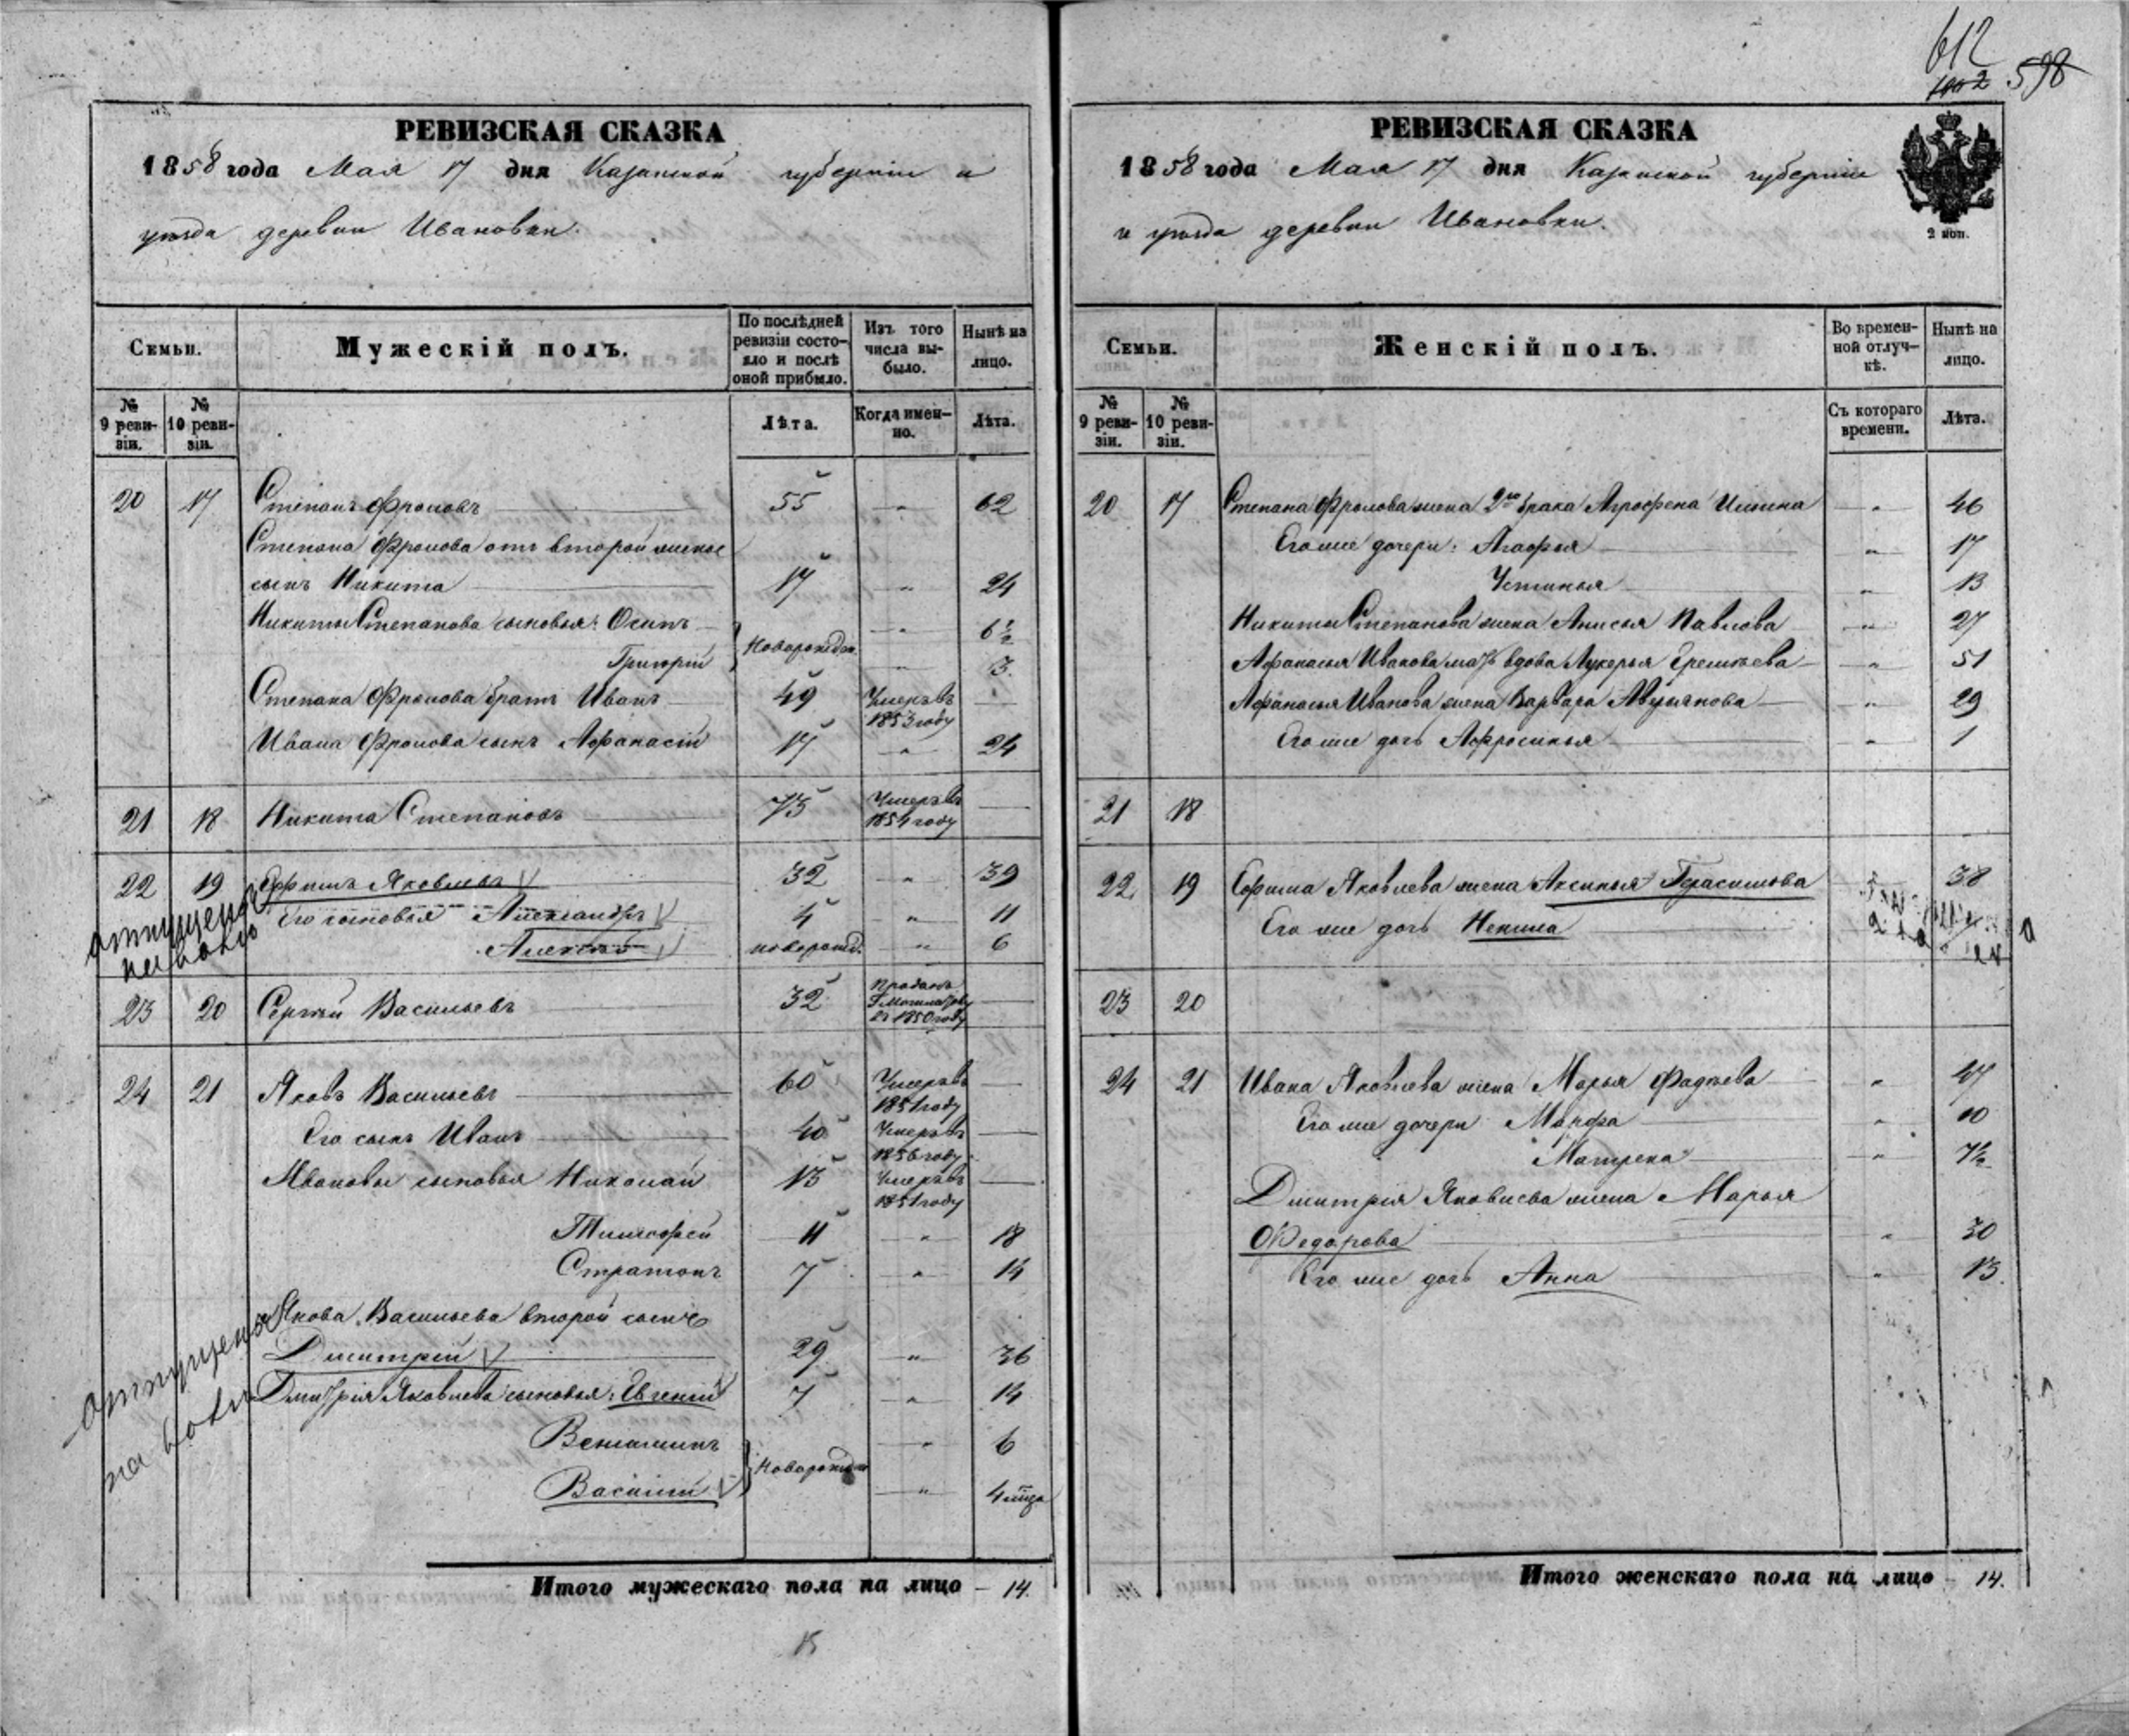 612
1002 598
РЕВИЗСКАЯ СКАЗКА
1858 года Мая 17 дня Казанской губернiи и
уѣзда деревни Ивановки.
Семьи.
Мужескій полъ.
По послѣдней ревизіи состояло и послѣ оной прибыло.
Изъ того числа выбыло.
Нынѣ на лицо.
№ 9 ревизіи.
№ 10 ревизіи.
Лѣта.
Когда именно.
Лѣта.
20 17 Степанъ Фроловъ 55 „ 62
Степана Фролова отъ второй жены
сынъ Никита 17 „ 24
Никиты Степанова сыновья: Осипъ „ 6½
Новорожден.
Григорій „ 3.
Степана Фролова братъ Иванъ 49 Умеръ въ 1853 году —
Ивана Фролова сынъ Афанасій 17 „ 24
21 18 Никита Степановъ 75 Умеръ въ 1854 году —
22 19 Ефимъ Яковлевъ 32 „ 39
Его сыновья Александръ 4 „ 11
Алексѣй новорожд. „ 6
отпущены на волю
23 20 Сергѣй Васильевъ 32 Проданъ въ 1850 году —
24 21 Яковъ Васильевъ 60 Умеръ въ 1851 году —
Его сынъ Иванъ 40 Умеръ въ 1856 году —
Ивановы сыновья Николай 13 Умеръ въ 1851 году —
Тимофей 11 „ 18
Стратонъ 7 „ 14
Якова Васильева второй сынъ
Дмитрій 29 „ 36
Дмитрія Яковлева сыновья: Евгеній 7 „ 14
Веніаминъ „ 6
Новорожден
Василій „ 4 мѣца
отпущены на волю
Итого мужескаго пола на лицо — 14.
15
РЕВИЗСКАЯ СКАЗКА
1858 года Мая 17 дня Казанской губерніи
и уѣзда деревни Ивановки.
2 коп.
Семьи.
Женскій полъ.
Во временной отлучкѣ.
Нынѣ на лицо.
№ 9 ревизіи.
№ 10 ревизіи.
Съ котораго времени.
Лѣта.
20 17 Степана Фролова жена 2го брака Агрофена Ильина „ 46
Его же дочери: Агафья „ 17
Устинья „ 13
Никиты Степанова жена Анисья Павлова „ 27
Афанасья Иванова мать вдова Лукерья „ 51
Афанасья Иванова жена Варвара „ 29
Его же дочь Афросинья „ 1
21 18
22 19 Ефима Яковлева жена Аксинья Герасимова 38
Его же дочь Ненила
23 20
24 21 Ивана Яковлева жена Марья Фадѣева „ 47
Его же дочери Марфа „ 10
Матрена „ 7½
Дмитрія Яковлева жена Марья
Федорова „ 30
Его же дочь Анна „ 13.
Итого женскаго пола на лицо — 14.